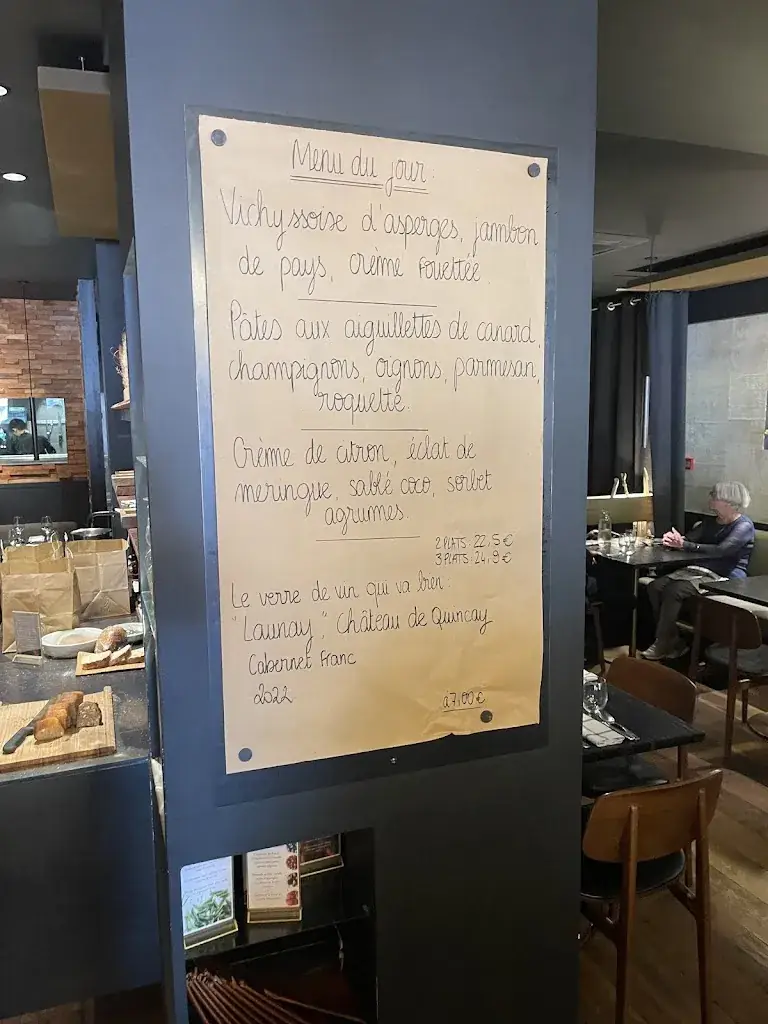 Menu du jour.
Vichyssoise d'asperges, jambon
de pays, crème fouettée
Pâtes aux aiguillettes de canard,
champignons, oignons, parmesan,
roquette.
Crème de citron, éclat de
meringue, sablé coco, sorbet
agrumes.
2 PLATS : 22,5 €
3 PLATS : 24,9 €
Le verre de vin qui va bien :
"Launay", Château de Quinçay
Cabernet Franc
2022
à 7,00 €